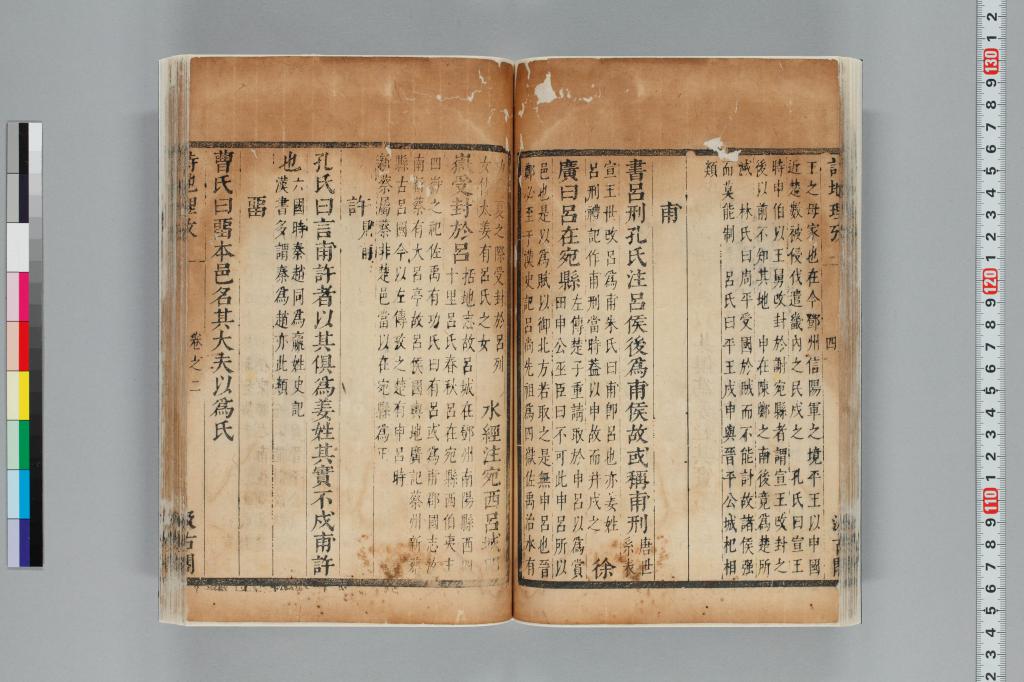 詩地理攷 二 四 汲古閣
王之母家也在今鄧州信陽軍之境平王以申國
近楚數被侵伐遣畿內之民戍之 孔氏曰宣王
時申伯以王舅改封於謝宛縣者謂宣王改封之
後以前不知其地 申在陳鄭之南後竟為楚所
滅 林氏曰周平受國於賊而不能討故諸侯强
而莫能制 呂氏曰平王戍申與晉平公城杞相
類
甫
書呂刑孔氏注呂侯後為甫侯故或稱甫刑 唐世系表
宣王世改呂為甫朱氏曰甫卽呂也亦姜姓
呂刑禮記作甫刑當時蓋以申故而并戍之 徐
廣曰呂在宛縣 左傳楚子重請取於申呂以為賞
田申公巫臣曰不可此申呂所以
邑也是以為賦以御北方若取之是無申呂也晉
鄭必至于漢史記呂尚先祖為四嶽佐禹治水有
夏之際受封於呂列
女傳太姜有呂氏之女 水經注宛西呂城
嶽受封於呂 括地志故呂城在鄧州南陽縣西四
十里呂氏春秋呂在宛縣西伯夷主
四嶽之記佐禹有功氏曰有呂或為甫郡國志汝
南新蔡有大呂亭故呂侯國輿地廣記蔡州新蔡
縣古呂國今以左傳攷之楚有申呂時
新蔡屬蔡非楚邑當以在宛縣為正
許 見鄘
孔氏曰言甫許者以其俱為姜姓其實不戍甫許
也 六國時秦趙同為嬴姓史記
漢書多謂秦為趙亦此類
畱
曹氏曰畱本邑名其大夫以為氏
詩地理攷 卷之二 汲古閣